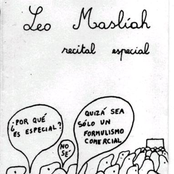 Leo Masliah
recital especial
¿POR QUÉ
ES ESPECIAL?
NO
SÉ
QUIZÁ SEA
SÓLO UN
FORMULISMO
COMERCIAL